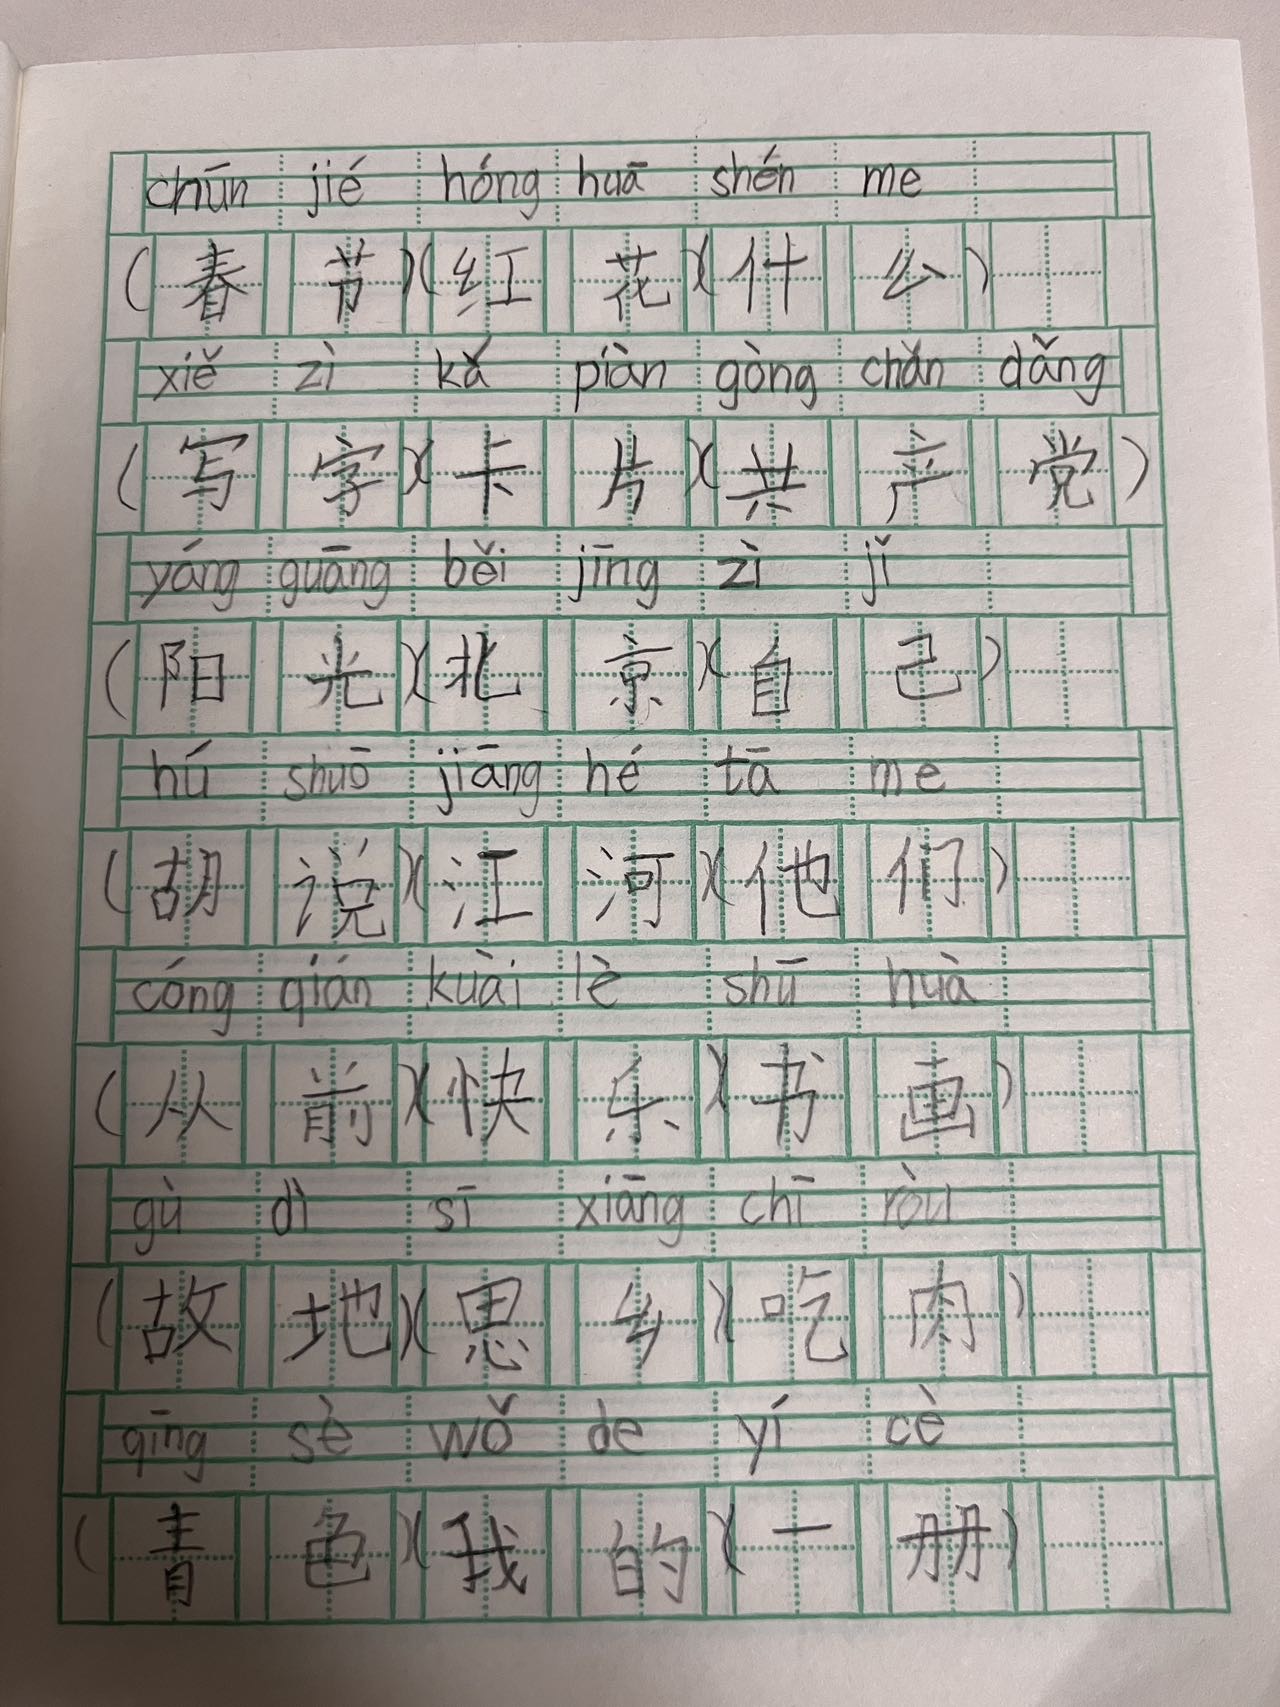 chūn jié hóng huā shén me
(春节)(红花)(什么)
xiě zì kǎ piàn gòng chǎn dǎng
(写字)(卡片)(共产党)
yáng guāng běi jīng zì jǐ
(阳光)(北京)(自己)
hú shuō jiāng hé tā me
(胡说)(江河)(他们)
cóng qián kuài lè shū huà
(从前)(快乐)(书画)
gù dì sī xiāng chī ròu
(故地)(思乡)(吃肉)
qīng sè wǒ de yí cè
(青色)(我的)(一册)